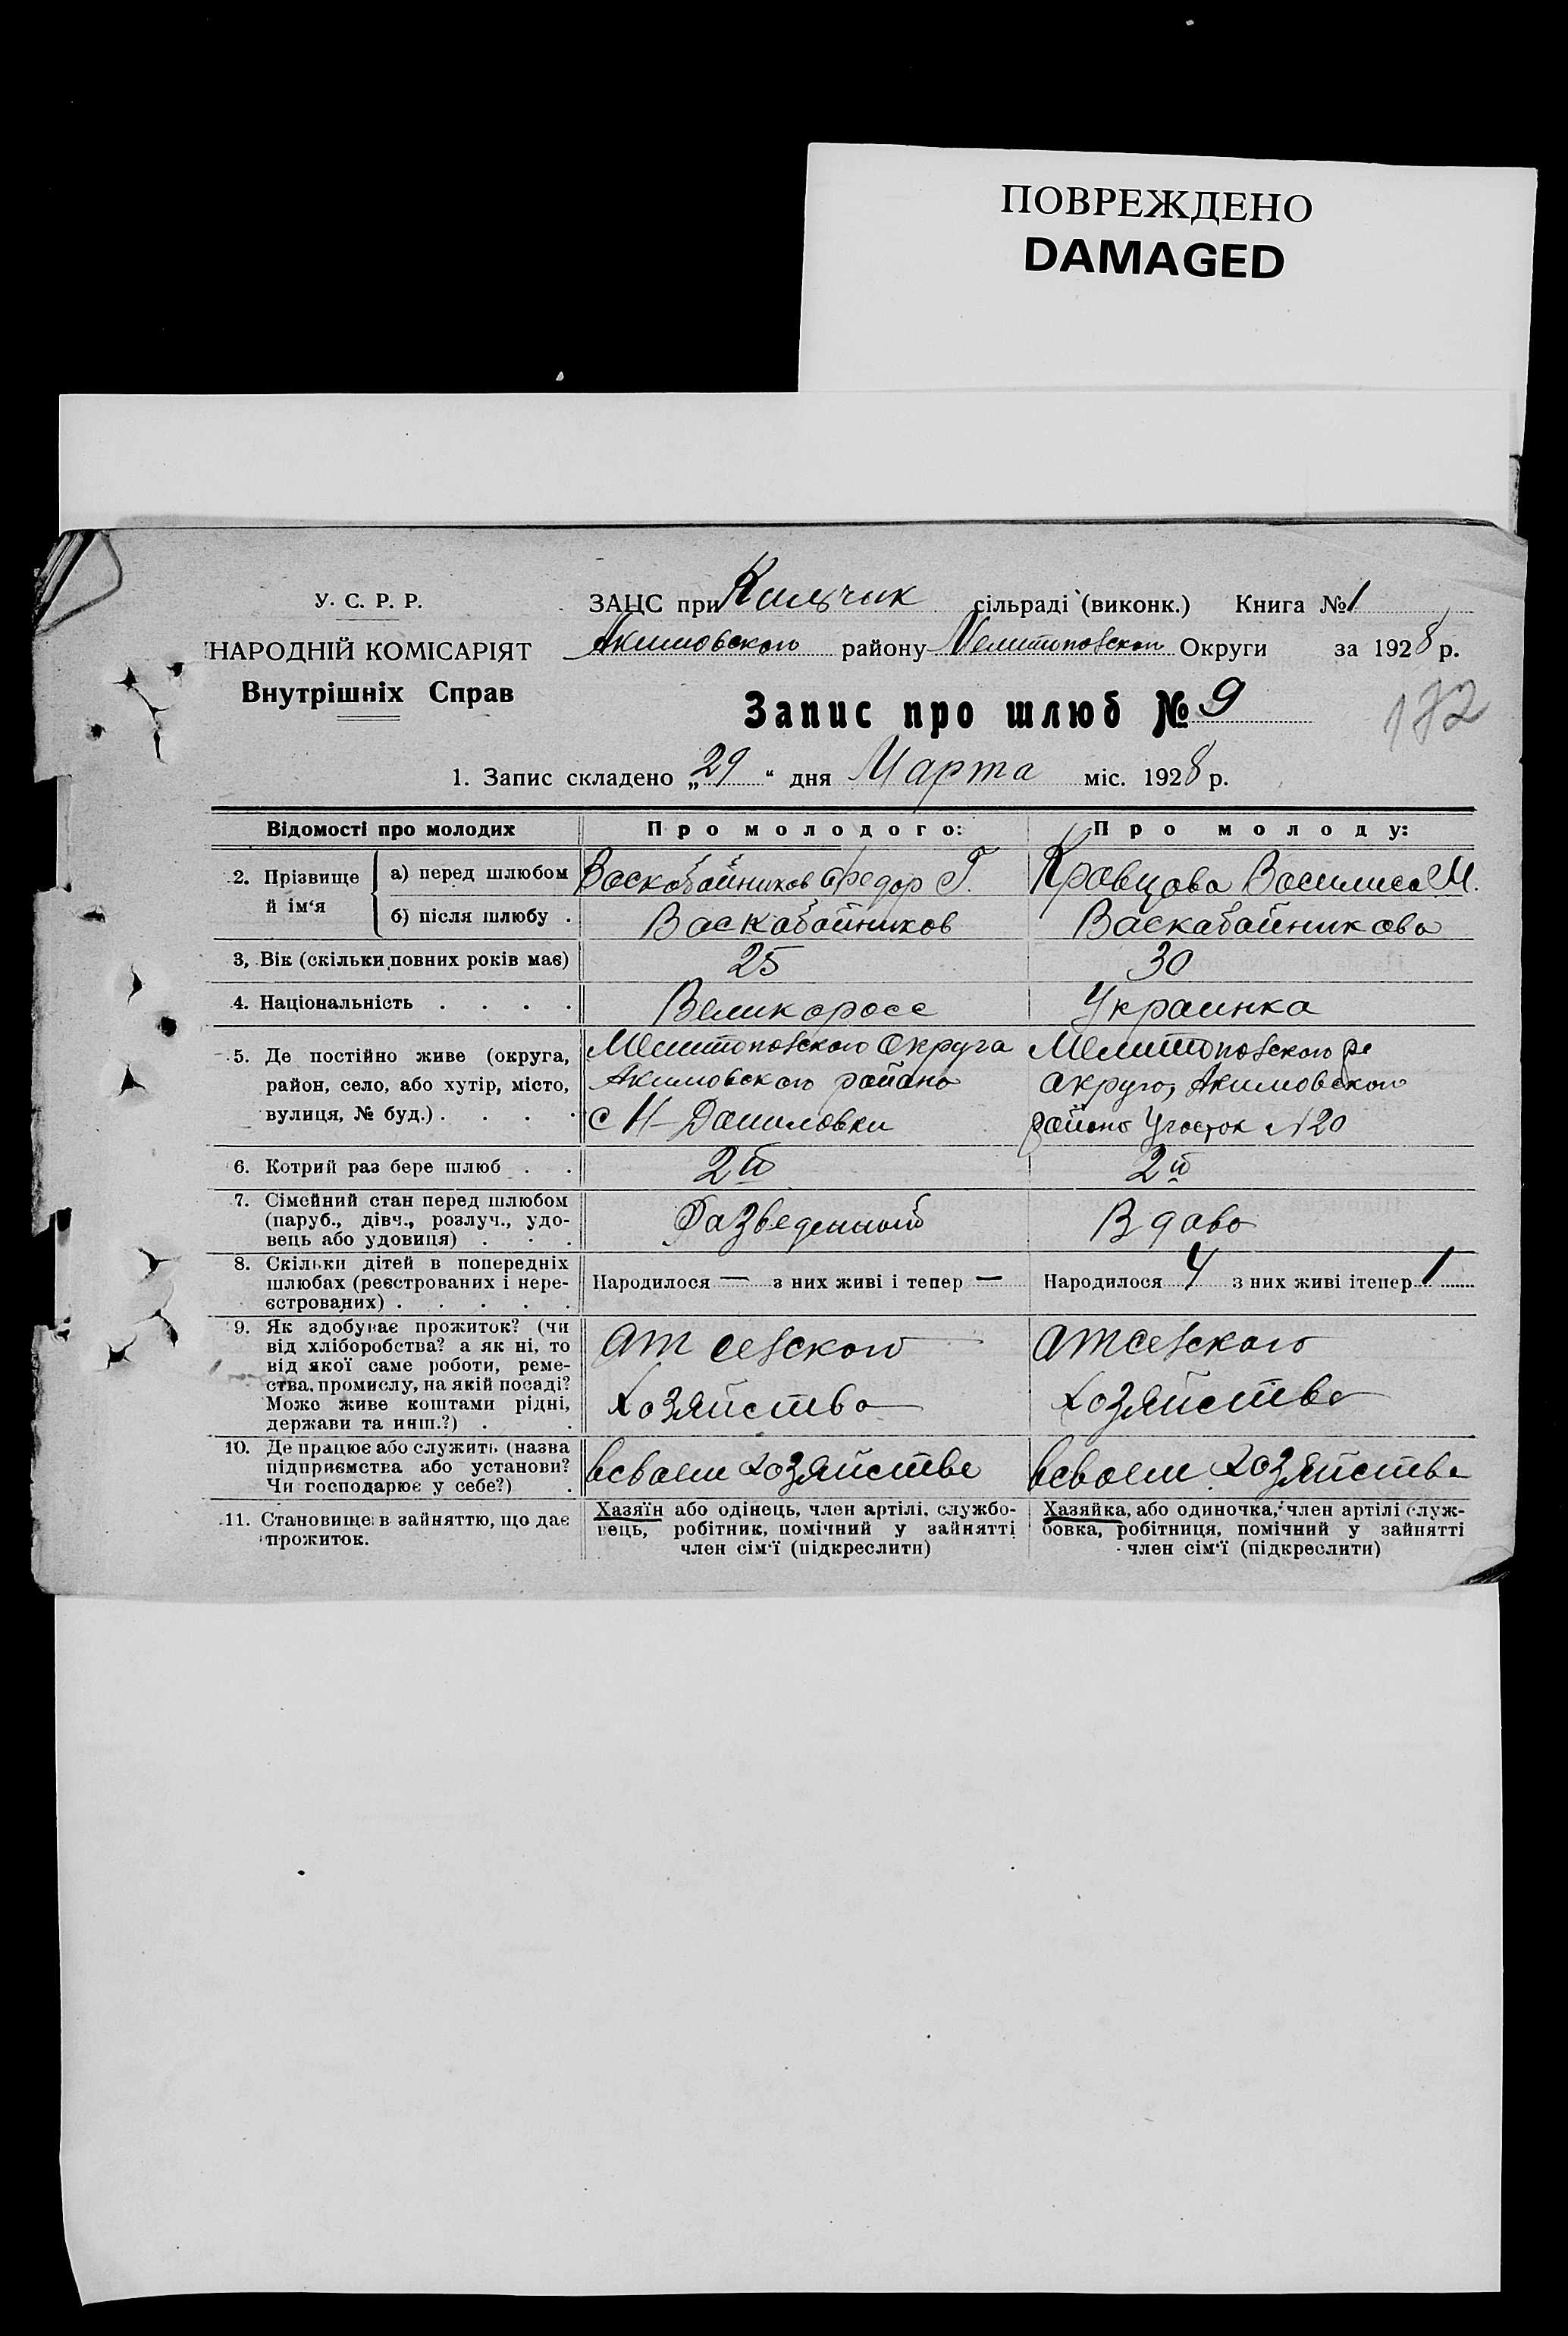 ПОВРЕЖДЕНО
DAMAGED
У. С. Р. Р.
НАРОДНІЙ КОМІСАРІЯТ
Внутрішніх Справ
ЗАЦС при сільраді (виконк.) Книга № 1
Акимовского району Мелитопольской Округи за 1928 р.
Запис про шлюб № 9
172
1. Запис складено „29“ дня Марта міс. 1928 р.
Відомості про молодих
Про молодого:
Про молоду:
2. Прізвище й ім'я
а) перед шлюбом
Васкабайников Федор Г.
Кравцова Василиса М.
б) після шлюбу .
Васкабайников
Васкабайникова
3. Вік (скільки повних років має)
25
30
4. Національність . . . .
Великоросс
Украинка
5. Де постійно живе (округа,
район, село, або хутір, місто,
вулиця, № буд.) . . . .
Мелитопольского Округа
Акимовского района
с Н-Даниловки
Мелитопольского
округа, Акимовского
района Участок N20
6. Котрий раз бере шлюб . .
2й
2й
7. Сімейний стан перед шлюбом
(паруб., дівч., розлуч., удо-
вець або удовиця) . . .
Разведенный
Вдова
8. Скільки дітей в попередніх
шлюбах (реєстрованих і нере-
єстрованих) . . . . .
Народилося — з них живі і тепер —
Народилося 4 з них живі ітепер 1
9. Як здобуває прожиток? (чи
від хліборобства? а як ні, то
від якої саме роботи, реме-
ства, промислу, на якій посаді?
Може живе коштами рідні,
держави та инш.?) . .
ат сельского
хозяйства
ат сельского
хозяйства
10. Де працює або служить (назва
підприємства або установи?
Чи господарює у себе?) .
всвоем хозяйстве
всвоем хозяйстве
11. Становище в зайняттю, що дає
прожиток.
Хазяїн або одінець, член артілі, службо-
вець, робітник, помічний у зайнятті
член сім'ї (підкреслити)
Хазяйка, або одиночка, член артілі служ-
бовка, робітниця, помічний у зайнятті
член сім'ї (підкреслити)